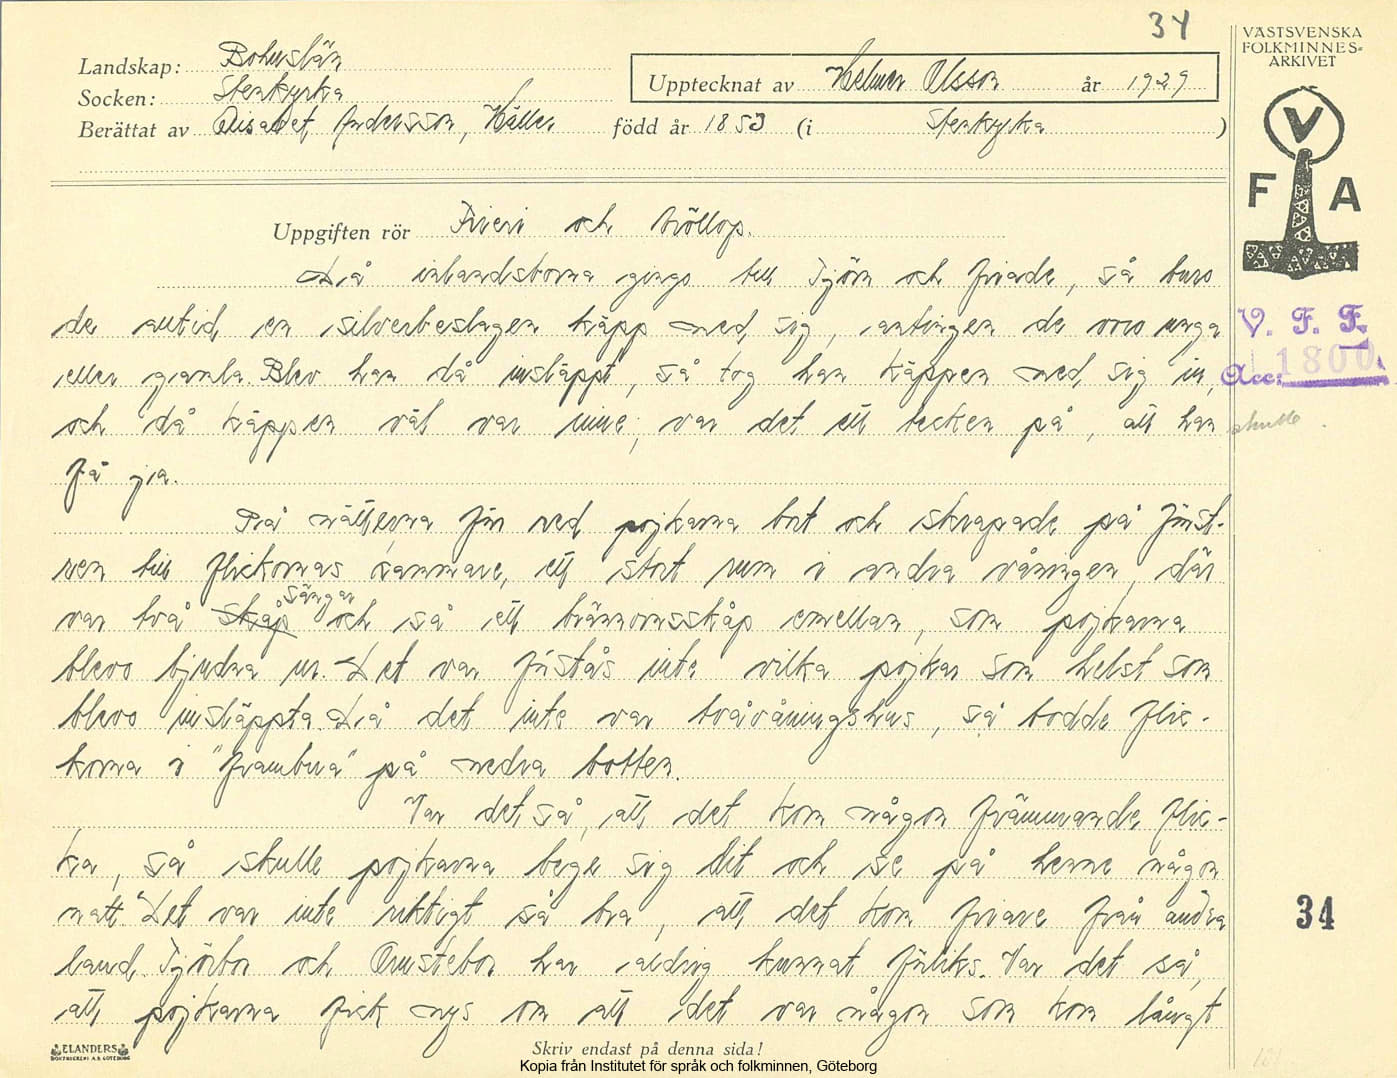 34
VÄSTSVENSKA
FOLKMINNES=
ARKIVET
Landskap: Bohuslän
Socken: Stenkyrka
Upptecknat av Helmer Olsson år 1929
Berättat av Elisabet Andersson, Häller född år 1853 (i Stenkyrka )
V
F A
Uppgiften rör Frieri och bröllop.
Då inlandsborna gingo till Tjörn och friade, så buro
de alltid en silverbeslagen käpp med sig, antingen de voro unga
eller gamla. Blev han då insläppt, så tog han käppen med sig in,
och då käppen väl var inne, var det ett tecken på, att han skulle
få ja.
V. F. F.
Acc: 1800.
På nätterna for ved pojkarna bort och skrapade på fönst-
ren till flickornas kammare, ett stort rum i andra våningen, där
var två skåp sängar och så ett brännvinsskåp emellan, som pojkarna
blevo bjudna ur. Det var förstås inte vilka pojkar som helst som
blevo insläppta. Då det inte var tvåvåningshus, så bodde flic-
korna i "frambua" på nedra botten.
Var det så, att det kom någon främmande flic-
ka, så skulle pojkarna bege sig dit och se på henne någon
natt. Det var inte riktigt så bra, att det kom friare från andra
land. Tjörbor och Orustebor har aldrig kunnat förliks. Var det så,
att pojkarna fick nys om att det var någon som kom långt
34
ELANDERS
BOKTRYCKERI A.B. GÖTEBORG
Skriv endast på denna sida!
Kopia från Institutet för språk och folkminnen, Göteborg